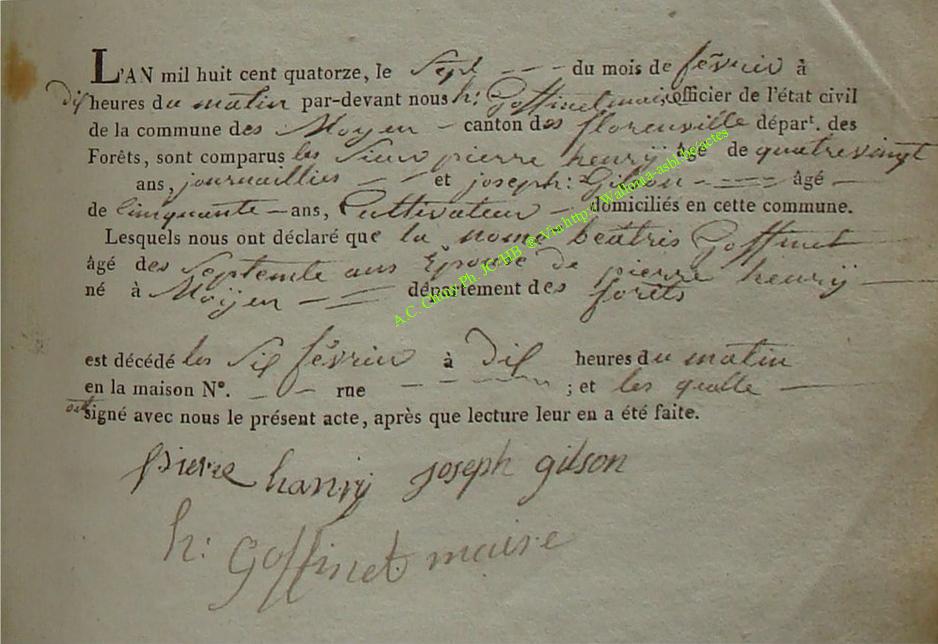 L'AN mil huit cent quatorze, le Sept - - - du mois de février à
dix heures du matin par-devant nous h: Goffinet maire officier de l'état civil
de la commune des Moyen - canton des florenville départ. des
Forêts, sont comparus les Sieur pierre henrÿ âgé de quatrevingt
ans, journaillier - - et joseph: Gilson - - - âgé -
de Cinquante - ans, Cultivateur - domiciliés en cette commune.
Lesquels nous ont déclaré que la nomé béatris Goffinet
âgé des Septente ans Epouse de pierre henrÿ -
né à Moÿen - - département des forêts
est décédé les Six février à dix heures du matin
en la maison N°. - - rue - - - - ; et les quelle -
ont signé avec nous le présent acte, après que lecture leur en a été faite.
pierre hanrÿ joseph gilson
h: Goffinet maire